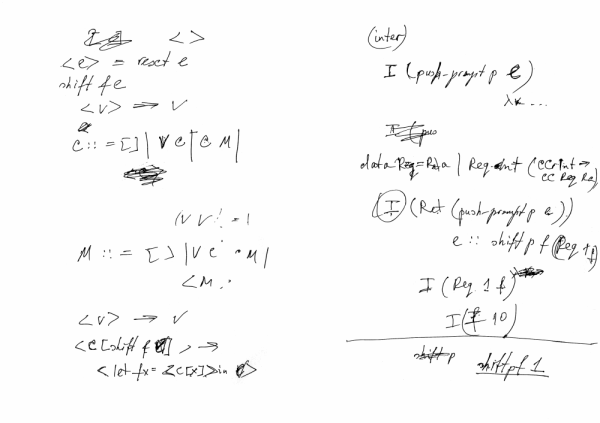 < >
<e> = reset e
shift f e
<v> ⇒ v
C ::= [] | V C | C M |
M ::= [] | V C · M |
<M .
<v> → v
<C[shift f e]> →
<let f x = <C[x]> in e>
(inter)
I (push-prompt p e)
λk ...
data Req = Ret a | Req Int (CC r Int →
CC Req Re)
I (Ret (push-prompt p e))
e :: shift p f (Req 1 f)
I (Req 1 f)
I (f 10)
shift p f 1